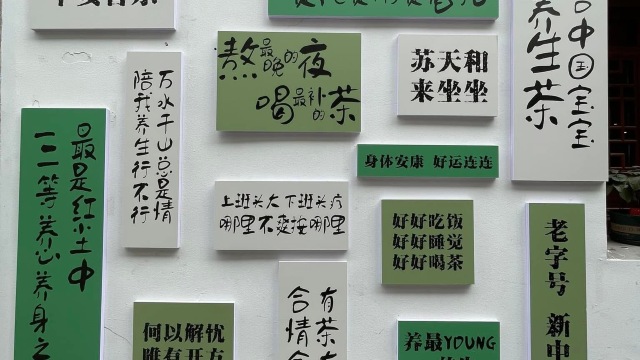 中国宝宝
养生茶
熬最晚的夜
喝最补的茶
苏天和
来坐坐
万水千山总是情
陪我养生行不行
身体安康 好运连连
最是红尘中
一二等养心养身之
上班头大下班头疗
哪里不爽按哪里
好好吃饭
好好睡觉
好好喝茶
老字号 新中
有茶
合情合
何以解忧
养最YOUNG